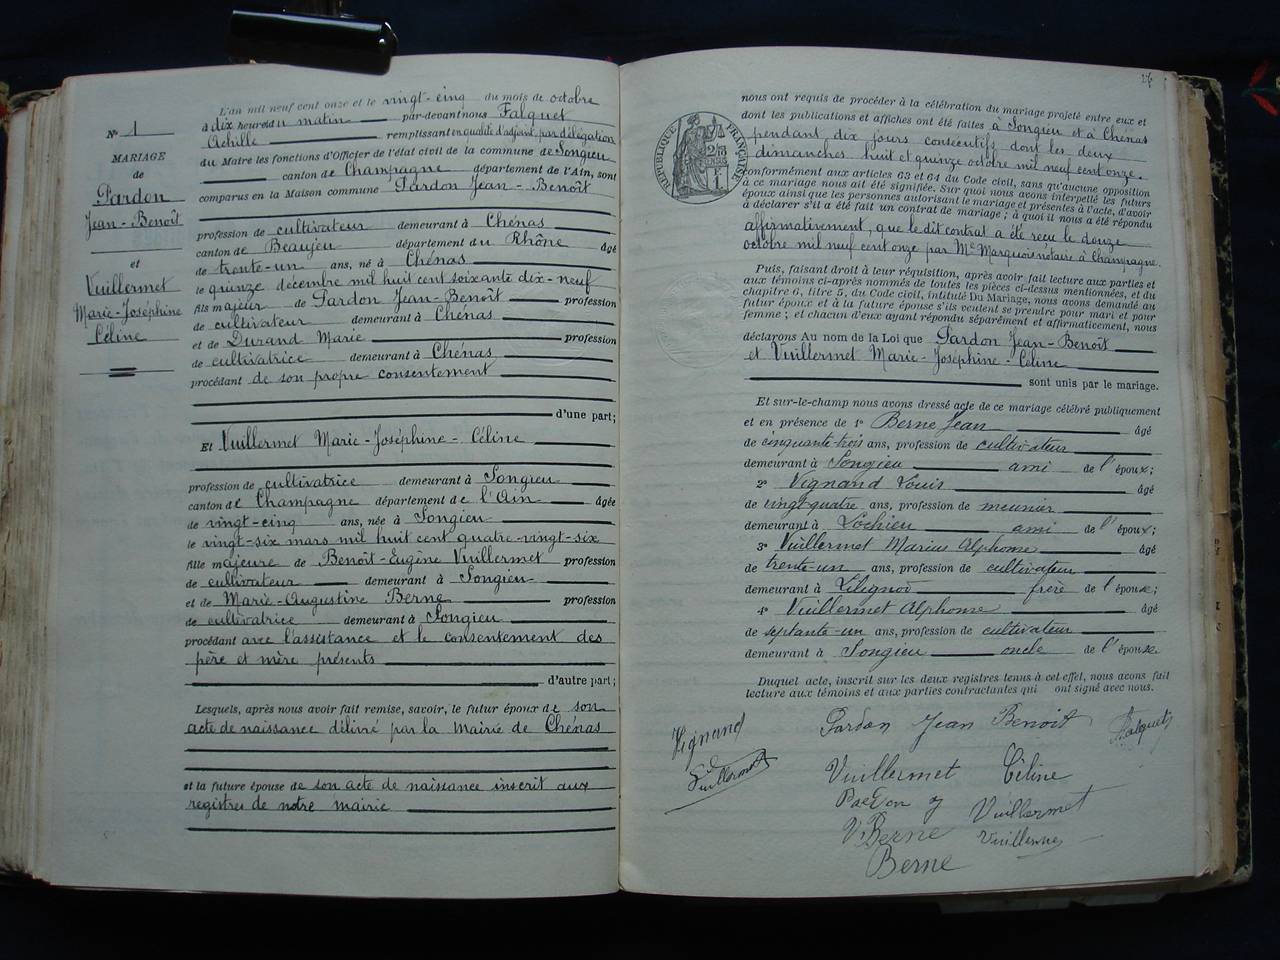 N° 1
MARIAGE
de
Pardon
Jean-Benoît
et
Vuillermet
Marie-Joséphine
Céline
L'an mil neuf cent onze et le vingt-cinq du mois de octobre
à dix heures du matin par-devant nous Falquet
Achille remplissant en qualité d'adjoint, par délégation
du Maire les fonctions d'Officier de l'état civil de la commune de Songieu
canton de Champagne département de l'Ain, sont
comparus en la Maison commune Pardon Jean-Benoît
profession de cultivateur demeurant à Chénas
canton de Beaujeu département du Rhône âgé
de trente-un ans, né à Chénas
le quinze décembre mil huit cent soixante dix-neuf
fils majeur de Pardon Jean-Benoît profession
de cultivateur demeurant à Chénas
et de Durand Marie profession
de cultivatrice demeurant à Chénas
procédant de son propre consentement
d'une part;
Et Vuillermet Marie-Joséphine-Céline
profession de cultivatrice demeurant à Songieu
canton de Champagne département de l'Ain âgée
de vingt-cinq ans, née à Songieu
le vingt-six mars mil huit cent quatre-vingt-six
fille majeure de Benoît-Eugène Vuillermet profession
de cultivateur demeurant à Songieu
et de Marie-Augustine Berne profession
de cultivatrice demeurant à Songieu
procédant avec l'assistance et le consentement des
père et mère présents
d'autre part;
Lesquels, après nous avoir fait remise, savoir, le futur époux de son
acte de naissance délivré par la Mairie de Chénas
et la future épouse de son acte de naissance inscrit aux
registres de notre mairie
RÉPUBLIQUE FRANÇAISE
nous ont requis de procéder à la célébration du mariage projeté entre eux et
dont les publications et affiches ont été faites à Songieu et à Chénas
pendant dix jours consécutifs dont les deux
dimanches huit et quinze octobre mil neuf cent onze.
conformément aux articles 63 et 64 du Code civil, sans qu'aucune opposition
à ce mariage nous ait été signifiée. Sur quoi nous avons interpellé les futurs
époux ainsi que les personnes autorisant le mariage et présentes à l'acte, d'avoir
à déclarer s'il a été fait un contrat de mariage; à quoi il nous a été répondu
affirmativement, que le dit contrat a été reçu le douze
octobre mil neuf cent onze par Me Marquois notaire à Champagne.
Puis, faisant droit à leur réquisition, après avoir fait lecture aux parties et
aux témoins ci-après nommés de toutes les pièces ci-dessus mentionnées, et du
chapitre 6, titre 5, du Code civil, intitulé Du Mariage, nous avons demandé au
futur époux et à la future épouse s'ils veulent se prendre pour mari et pour
femme; et chacun d'eux ayant répondu séparément et affirmativement, nous
déclarons Au nom de la Loi que Pardon Jean-Benoît
et Vuillermet Marie-Joséphine-Céline
sont unis par le mariage.
Et sur-le-champ nous avons dressé acte de ce mariage célébré publiquement
et en présence de 1° Berne Jean âgé
de cinquante-trois ans, profession de cultivateur
demeurant à Songieu ami de l'époux;
2° Vignand Louis âgé
de vingt-quatre ans, profession de meunier
demeurant à Lochieu ami de l'époux;
3° Vuillermet Marius Alphonse âgé
de trente-un ans, profession de cultivateur
demeurant à frère de l'épouse;
4° Vuillermet Alphonse âgé
de septante-un ans, profession de cultivateur
demeurant à Songieu oncle de l'épouse.
Duquel acte, inscrit sur les deux registres tenus à cet effet, nous avons fait
lecture aux témoins et aux parties contractantes qui ont signé avec nous.
Vignand
Vuillermet
Pardon Jean Benoit
Falquet
Vuillermet Céline
Vuillermet
Berne
Berne